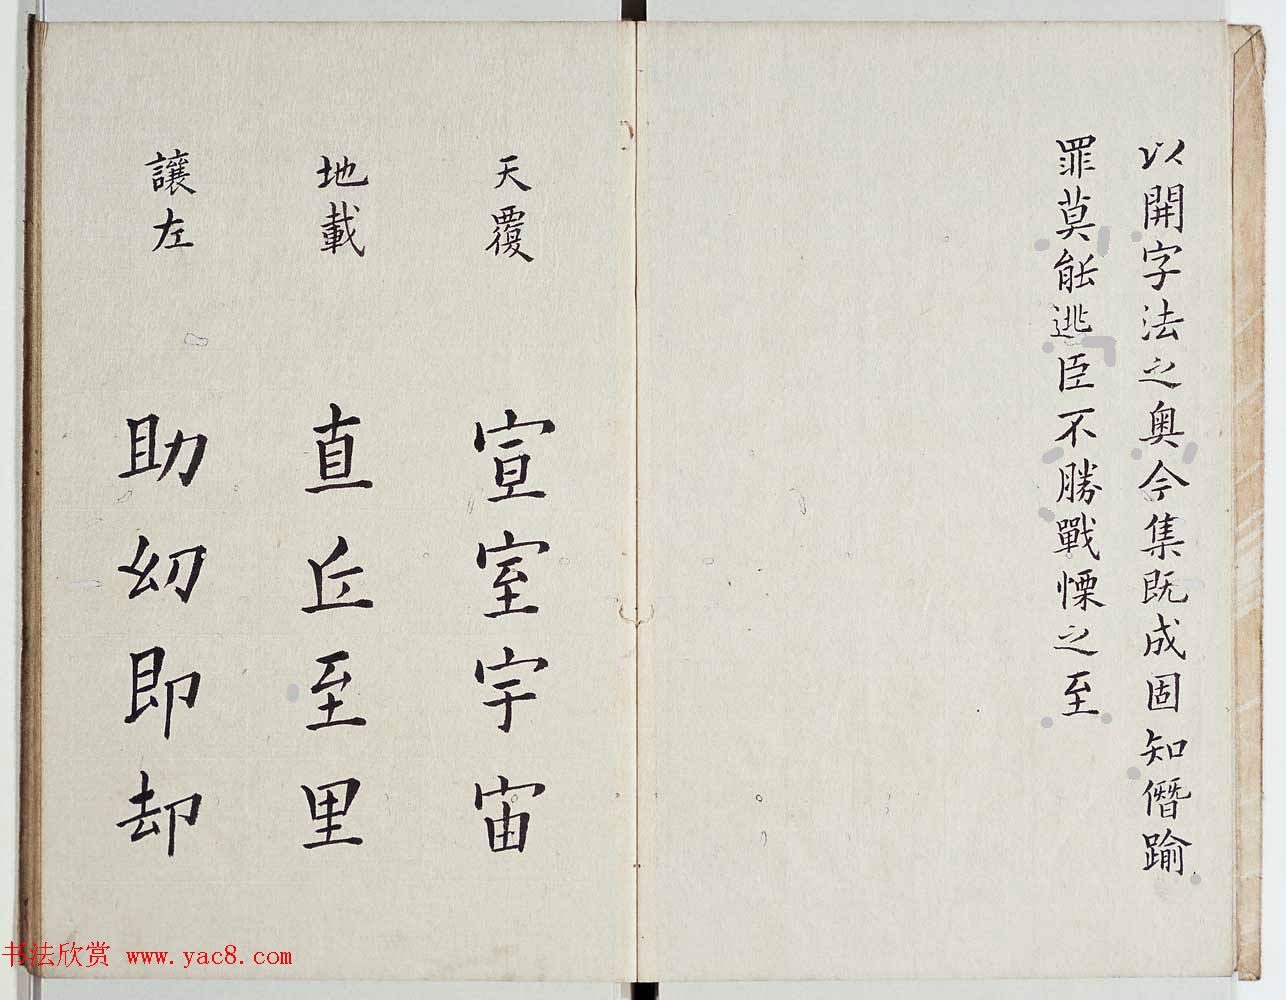 以開字法之奥今集既成固知僭踰
罪莫能逃臣不勝戰慄之至
天覆
宣室宇宙
地載
直丘至里
讓左
助幼即却
书法欣赏 www.yac8.com